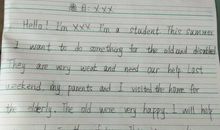 自: XXX
Hello! I'm XXX. I'm a student. This summer
I want to do something for the old and disabled
They are very weak and need our help. Last
weekend, my parents and I visited the home for
the elderly. The old were very happy. I will help